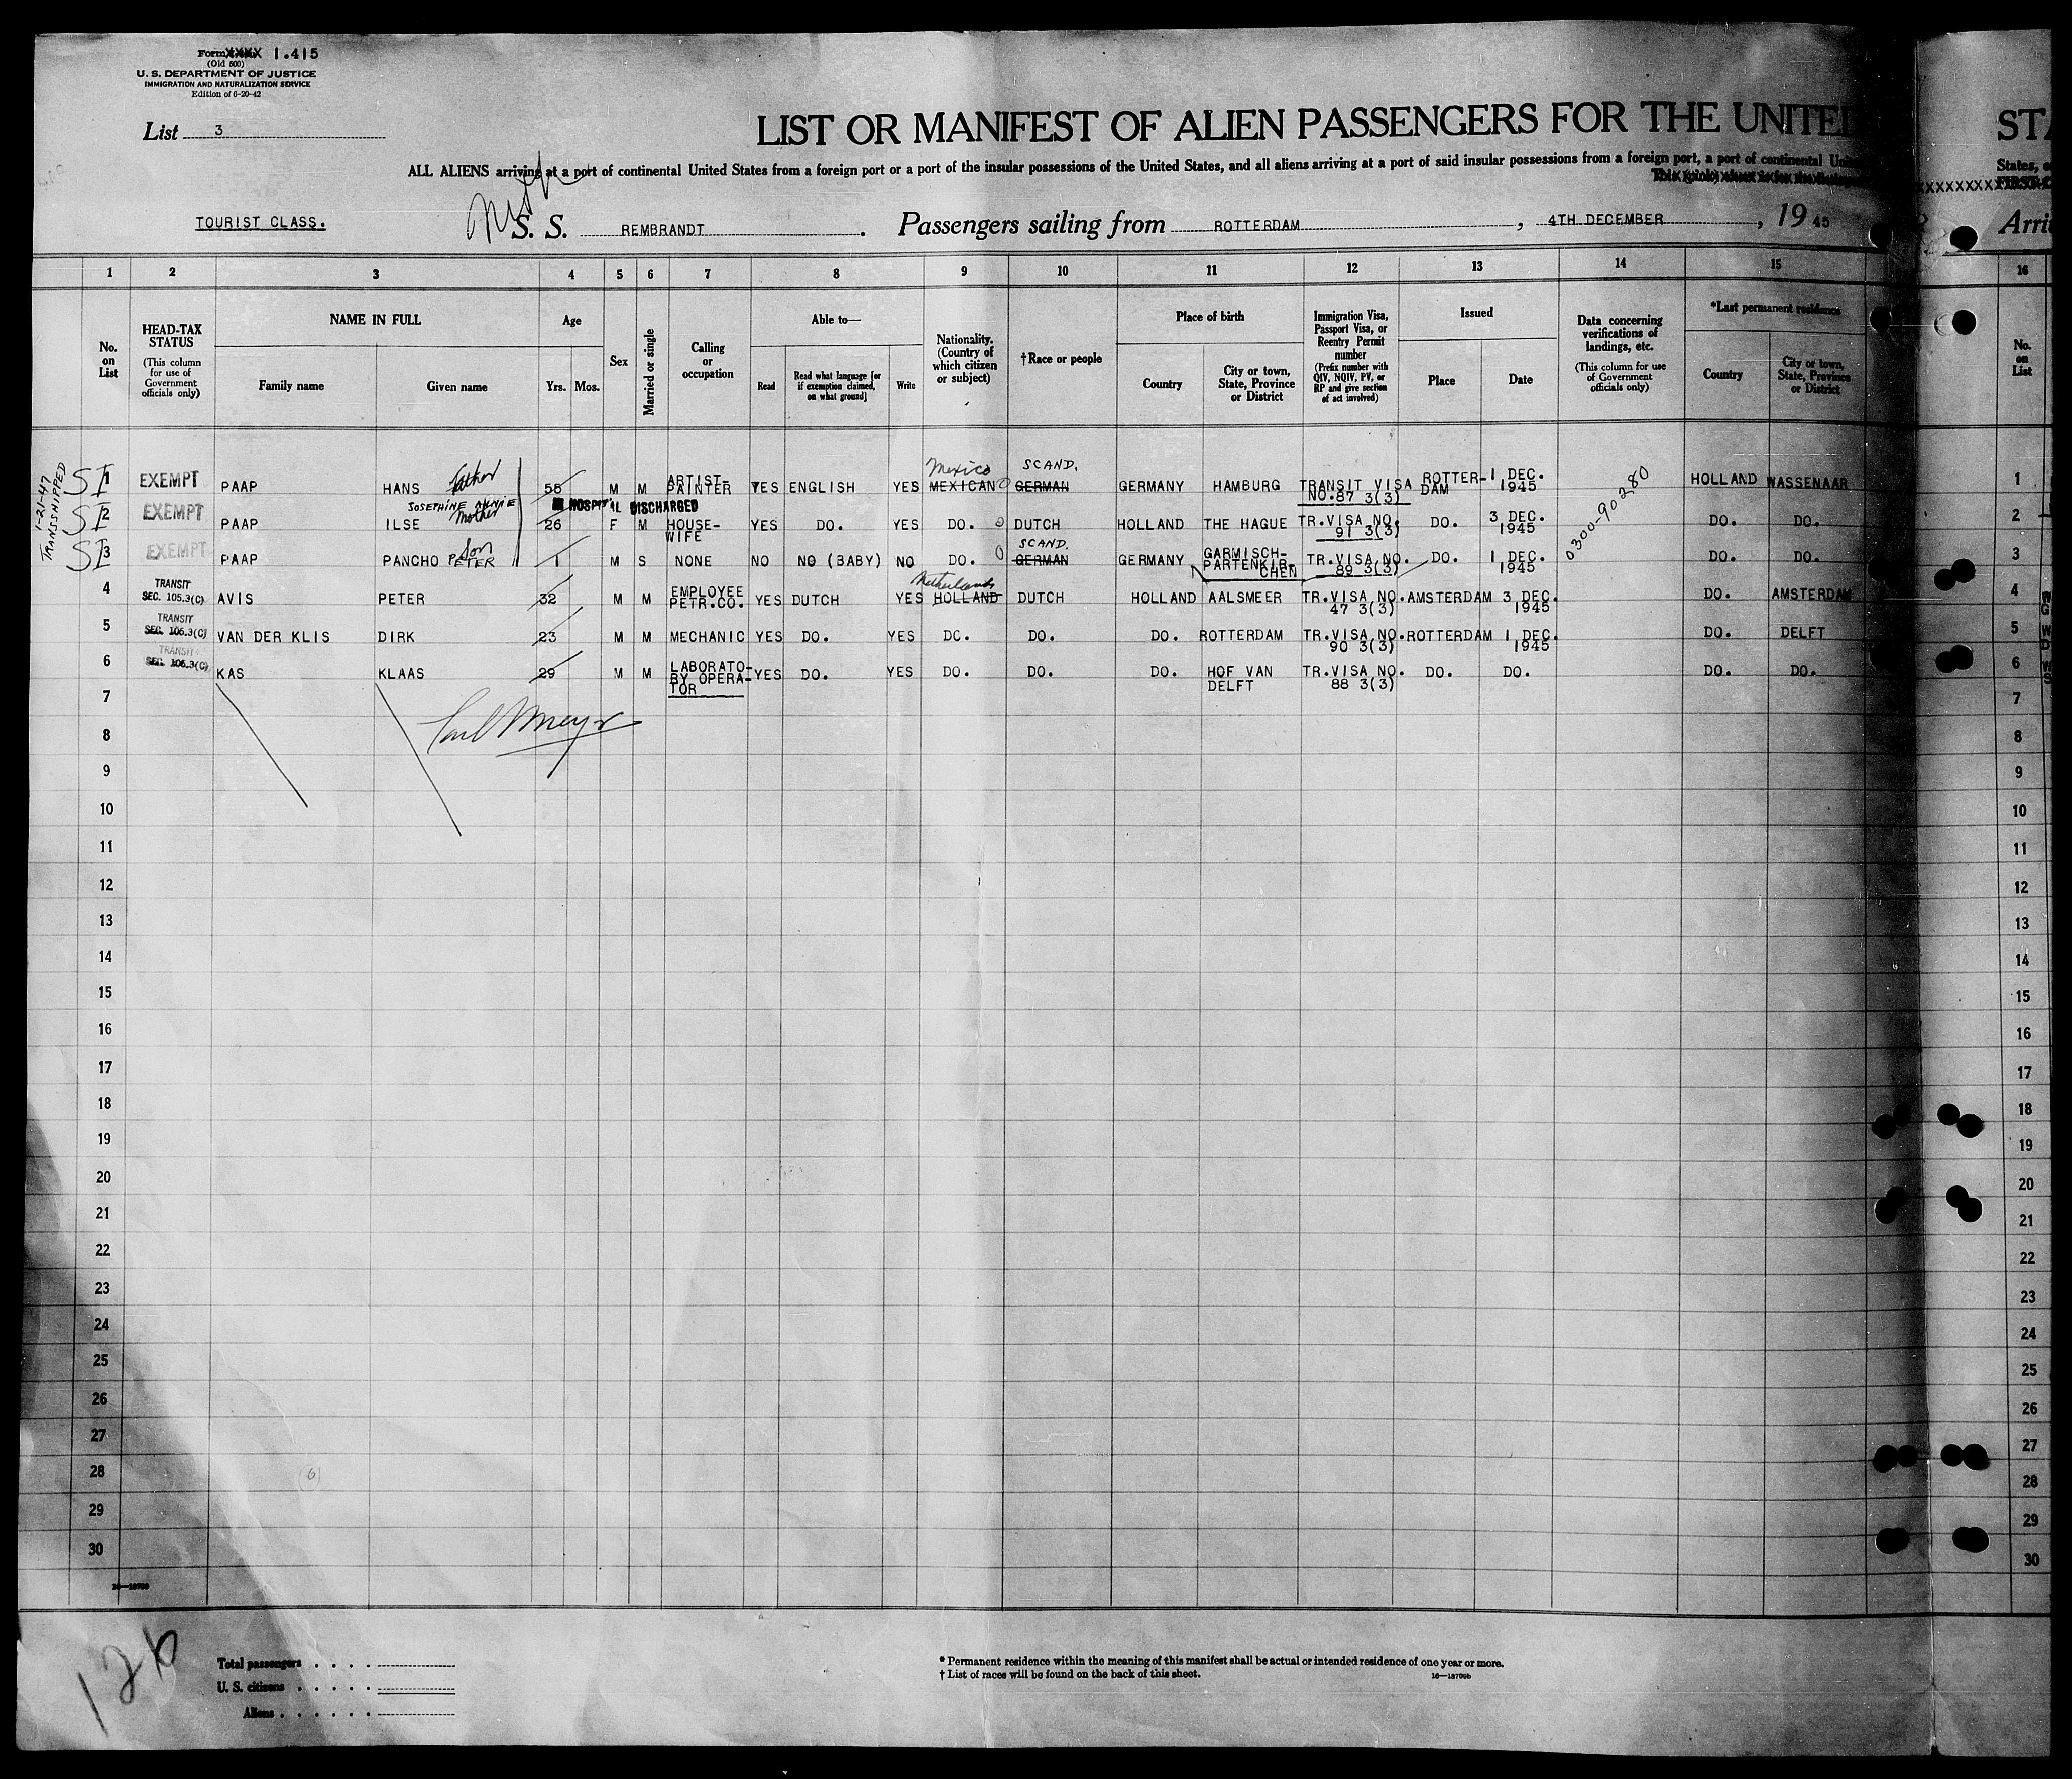 Form XXXX 1.415
(Old 500)
U. S. DEPARTMENT OF JUSTICE
IMMIGRATION AND NATURALIZATION SERVICE
Edition of 6-20-42
List 3
LIST OR MANIFEST OF ALIEN PASSENGERS FOR THE UNITED
ALL ALIENS arriving at a port of continental United States from a foreign port or a port of the insular possessions of the United States, and all aliens arriving at a port of said insular possessions from a foreign port, a port of continental
TOURIST CLASS. S. S. REMBRANDT. Passengers sailing from ROTTERDAM, 4TH DECEMBER, 19 45
1 2 3 4 5 6 7 8 9 10 11 12 13 14 15 16
No. on List
HEAD-TAX STATUS
(This column for use of Government officials only)
NAME IN FULL
Family name Given name
Age
Yrs. Mos.
Sex
Married or single
Calling or occupation
Able to—
Read
Read what language [or if exemption claimed, on what ground]
Write
Nationality. (Country of which citizen or subject)
†Race or people
Place of birth
Country
City or town, State, Province or District
Immigration Visa, Passport Visa, or Reentry Permit number
(Prefix number with QIV, NQIV, PV, or RP and give section of act involved)
Issued
Place Date
Data concerning verifications of landings, etc.
(This column for use of Government officials only)
*Last permanent residence
Country
City or town, State, Province or District
No. on List
1-21-47
TRANSSHIPPED
0300-90280
SI 1 EXEMPT PAAP HANS Father 55 M M ARTIST-PAINTER YES ENGLISH YES Mexico MEXICAN SCAND. GERMAN GERMANY HAMBURG TRANSIT VISA NO.87 3(3) ROTTER-DAM 1 DEC. 1945 HOLLAND WASSENAAR 1
HOSPITAL DISCHARGED
SI 2 EXEMPT PAAP ILSE JOSEPHINE ANNIE Mother 26 F M HOUSE-WIFE YES DO. YES DO. DUTCH HOLLAND THE HAGUE TR.VISA NO. 91 3(3) DO. 3 DEC. 1945 DO. DO. 2
SI 3 EXEMPT PAAP PANCHO PETER Son 1 M S NONE NO NO (BABY) NO DO. SCAND. GERMAN GERMANY GARMISCH-PARTENKIR-CHEN TR.VISA NO. 89 3(3) DO. 1 DEC. 1945 DO. DO. 3
4 TRANSIT SEC. 105.3(C) AVIS PETER 32 M M EMPLOYEE PETR.CO. YES DUTCH YES Netherlands HOLLAND DUTCH HOLLAND AALSMEER TR.VISA NO. 47 3(3) AMSTERDAM 3 DEC. 1945 DO. AMSTERDAM 4
5 TRANSIT SEC. 106.3(C) VAN DER KLIS DIRK 23 M M MECHANIC YES DO. YES DO. DO. DO. ROTTERDAM TR.VISA NO. 90 3(3) ROTTERDAM 1 DEC. 1945 DO. DELFT 5
6 TRANSIT SEC. 106.3(C) KAS KLAAS 29 M M LABORATO-RY OPERA-TOR YES DO. YES DO. DO. DO. HOF VAN DELFT TR.VISA NO. 88 3(3) DO. DO. DO. DO. 6
7 7
8 8
9 9
10 10
11 11
12 12
13 13
14 14
15 15
16 16
17 17
18 18
19 19
20 20
21 21
22 22
23 23
24 24
25 25
26 26
27 27
28 28
29 29
30 30
126
Total passengers
U. S. citizens
Aliens
* Permanent residence within the meaning of this manifest shall be actual or intended residence of one year or more.
† List of races will be found on the back of this sheet.
16—18709b